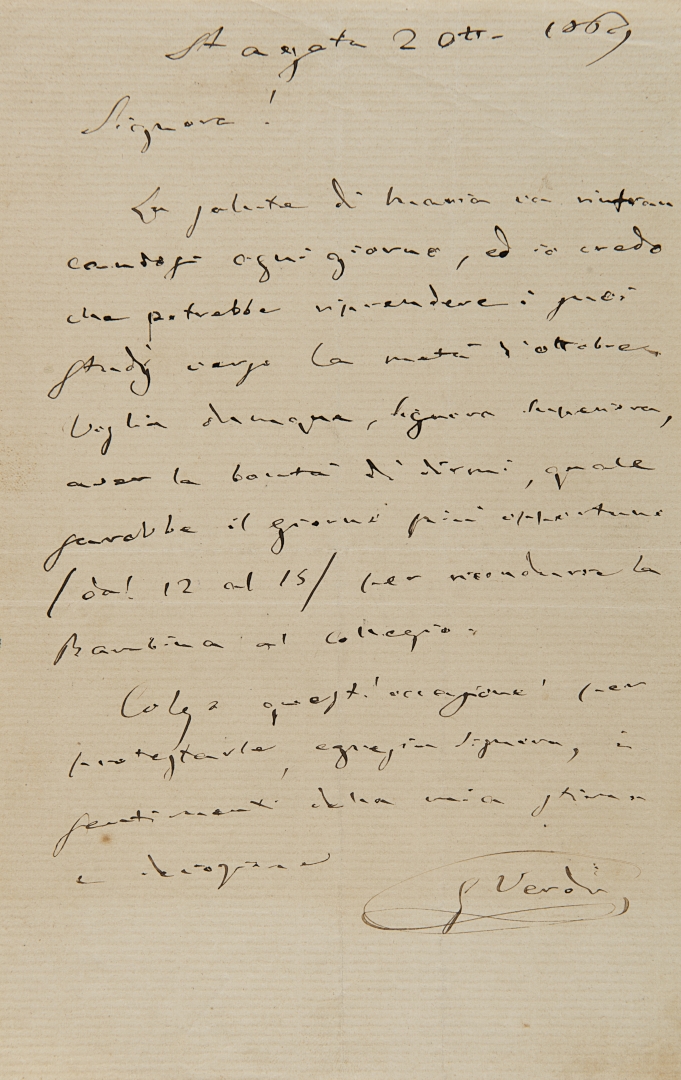 St agata 2 Ott. 1869
Signora!
La salute di Maria va rinfran
candosi ogni giorno, ed io credo
che potrebbe riprendere i suoi
studj verso la metà d'ottobre
Voglia dunque, Signora Superiora,
aver la bontà di dirmi, quale
sarebbe il giorno più opportuno
/dal 12 al 15/ per ricondurre la
Bambina al collegio.
Colgo quest'occasione per
protestarle, egregia Signora, i
sentimenti della mia stima
e devozione
G Verdi